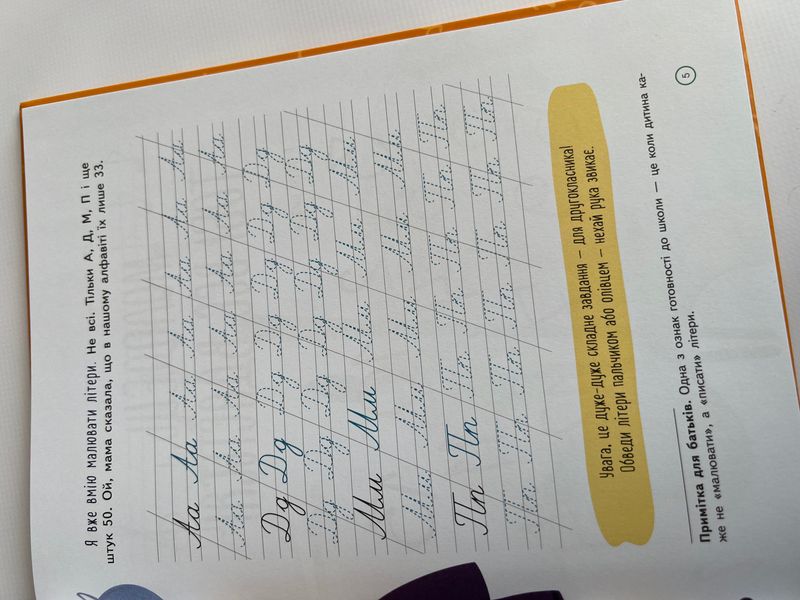 Я вже вмію малювати літери. Не всі. Тільки А, Д, М, П і ще
штук 50. Ой, мама сказала, що в нашому алфавіті їх лише 33.
Аа Аа Аа Аа Аа Аа Аа
Аа Аа Аа Аа Аа Аа Аа
Дд Дд Дд Дд Дд Дд Дд
Дд Дд Дд Дд Дд Дд Дд
Мм Мм Мм Мм Мм
Мм Мм Мм Мм Мм
Пп Пп Пп Пп Пп Пп Пп
Пп Пп Пп Пп Пп Пп Пп
Увага, це дуже-дуже складне завдання — для другокласника!
Обведи літери пальчиком або олівцем — нехай рука звикає.
Примітка для батьків. Одна з ознак готовності до школи — це коли дитина ка-
же не «малювати», а «писати» літери.
5